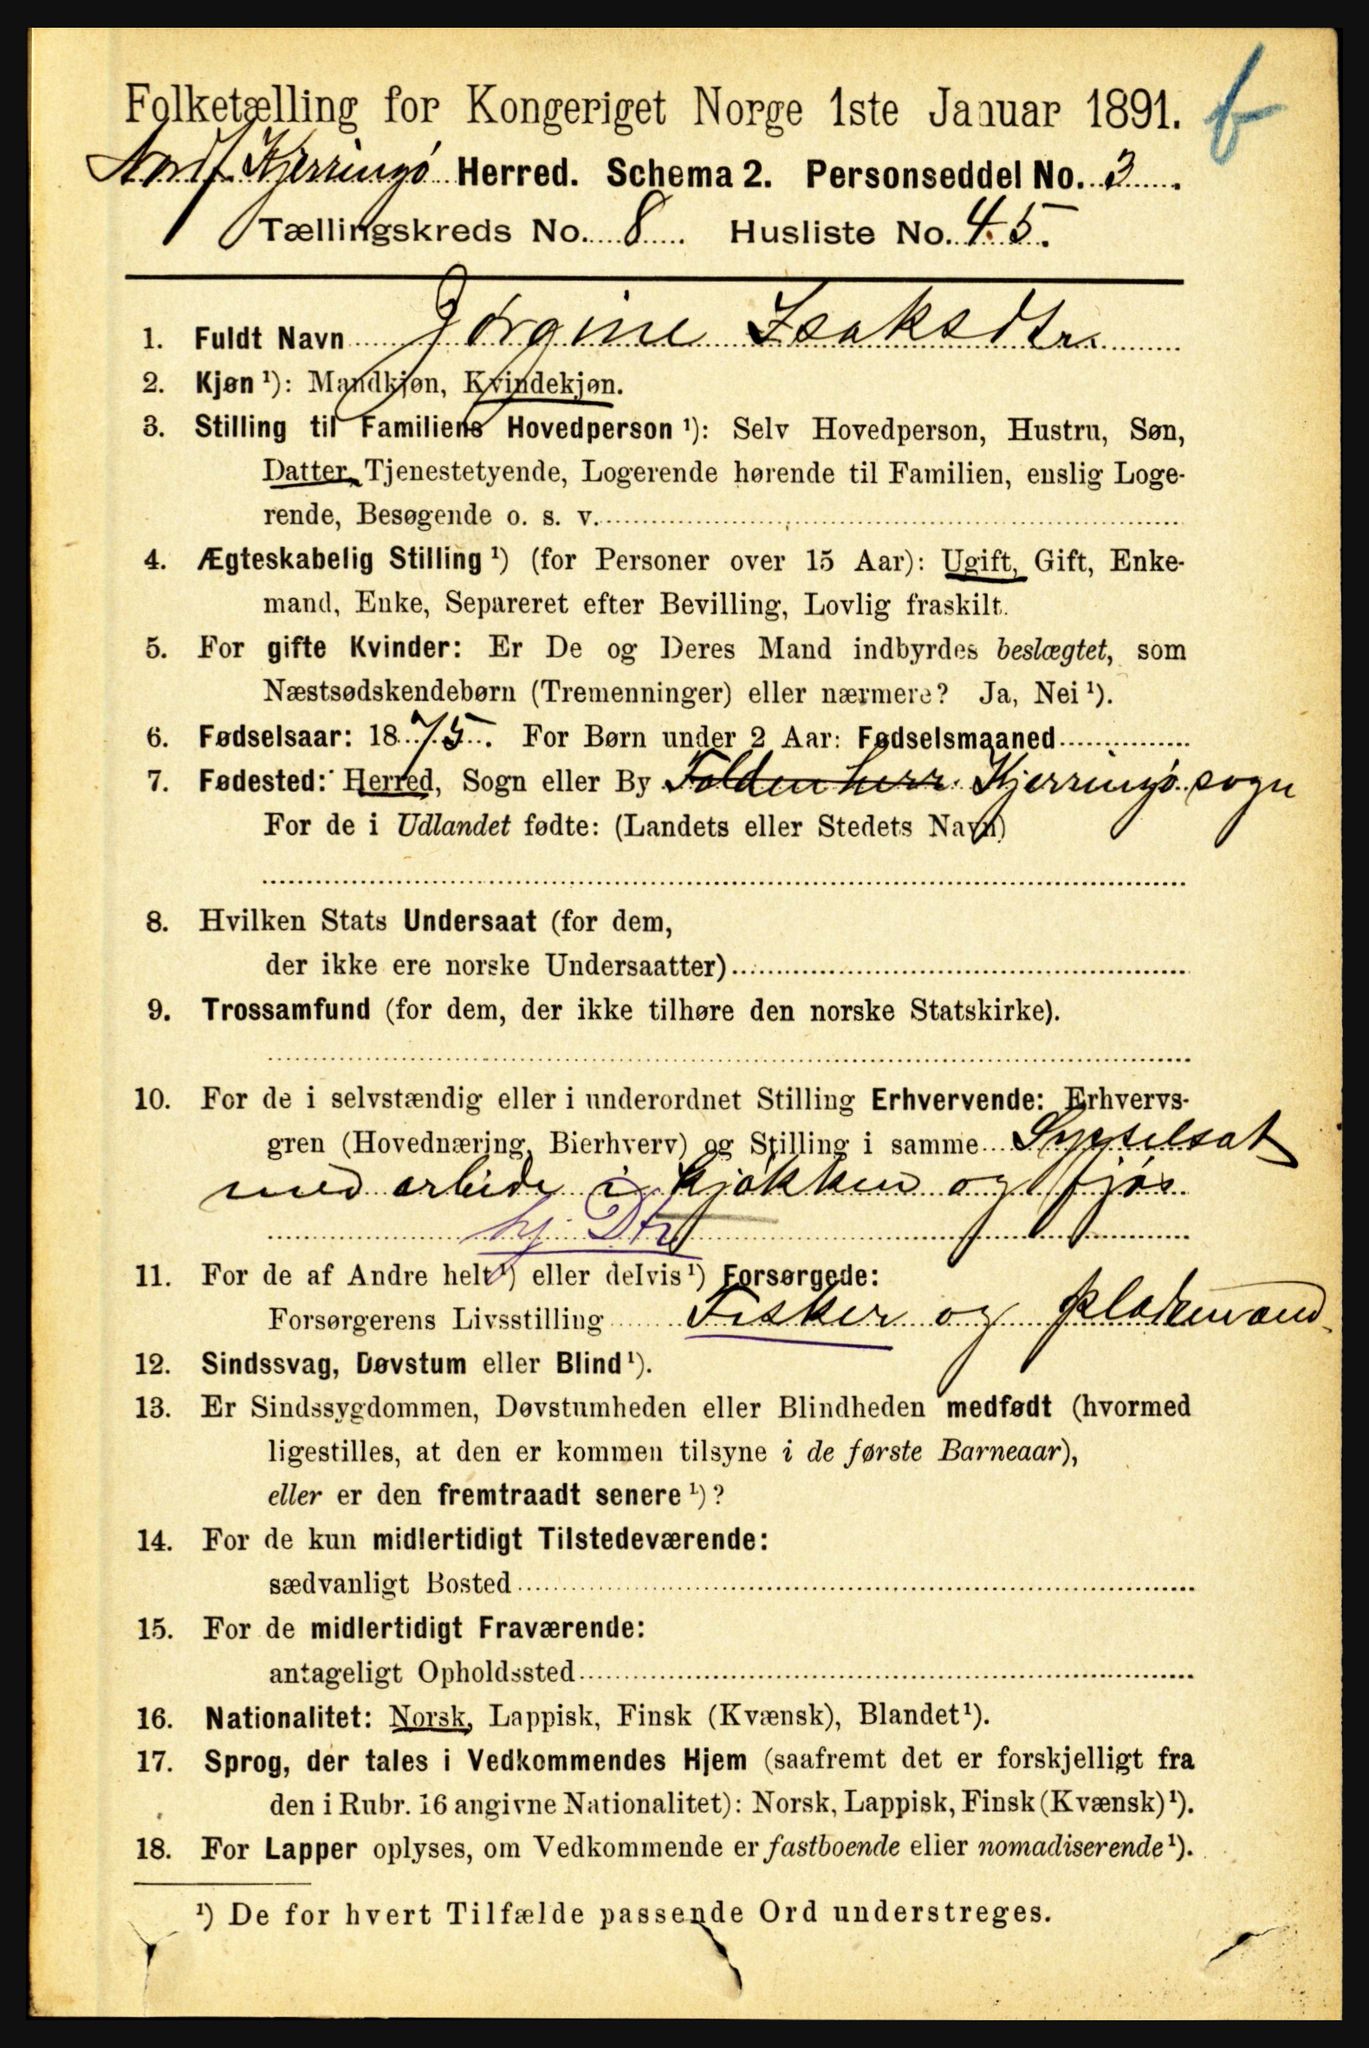 Folketælling for Kongeriget Norge 1ste Januar 1891.
Nordf. Kjerringø Herred. Schema 2. Personseddel No. 3.
Tællingskreds No. 8. Husliste No. 45.
1. Fuldt Navn Jørgine Isaksdtr.
2. Kjøn ¹): Mandkjøn, Kvindekjøn.
3. Stilling til Familiens Hovedperson ¹): Selv Hovedperson, Hustru, Søn,
Datter, Tjenestetyende, Logerende hørende til Familien, enslig Loge-
rende, Besøgende o. s. v.
4. Ægteskabelig Stilling ¹) (for Personer over 15 Aar): Ugift, Gift, Enke-
mand, Enke, Separeret efter Bevilling, Lovlig fraskilt.
5. For gifte Kvinder: Er De og Deres Mand indbyrdes beslægtet, som
Næstsødskendebørn (Tremenninger) eller nærmere? Ja, Nei ¹).
6. Fødselsaar: 1875. For Børn under 2 Aar: Fødselsmaaned
7. Fødested: Herred, Sogn eller By Folden herr. Kjerringø sogn
For de i Udlandet fødte: (Landets eller Stedets Navn)
8. Hvilken Stats Undersaat (for dem,
der ikke ere norske Undersaatter)
9. Trossamfund (for dem, der ikke tilhøre den norske Statskirke).
10. For de i selvstændig eller i underordnet Stilling Erhvervende: Erhvervs-
gren (Hovednæring, Bierhverv) og Stilling i samme Sysselsat
med arbeide i kjøkken og fjøs
hj. Dtr
11. For de af Andre helt ¹) eller delvis ¹) Forsørgede:
Forsørgerens Livsstilling Fisker og pladsmand
12. Sindssvag, Døvstum eller Blind ¹).
13. Er Sindssygdommen, Døvstumheden eller Blindheden medfødt (hvormed
ligestilles, at den er kommen tilsyne i de første Barneaar),
eller er den fremtraadt senere ¹)?
14. For de kun midlertidigt Tilstedeværende:
sædvanligt Bosted
15. For de midlertidigt Fraværende:
antageligt Opholdssted
16. Nationalitet: Norsk, Lappisk, Finsk (Kvænsk), Blandet ¹).
17. Sprog, der tales i Vedkommendes Hjem (saafremt det er forskjelligt fra
den i Rubr. 16 angivne Nationalitet): Norsk, Lappisk, Finsk (Kvænsk) ¹).
18. For Lapper oplyses, om Vedkommende er fastboende eller nomadiserende ¹).
¹) De for hvert Tilfælde passende Ord understreges.